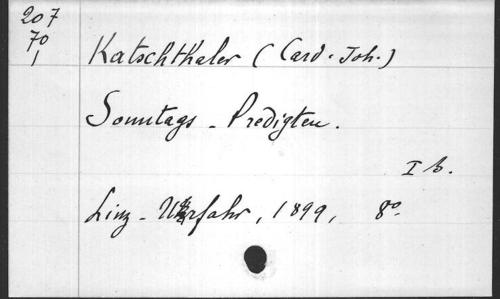 207
70
1
Katschthaler (Card. Joh.)
Sonntags - Predigten.
I b.
Linz - Urfahr, 1899, 8°